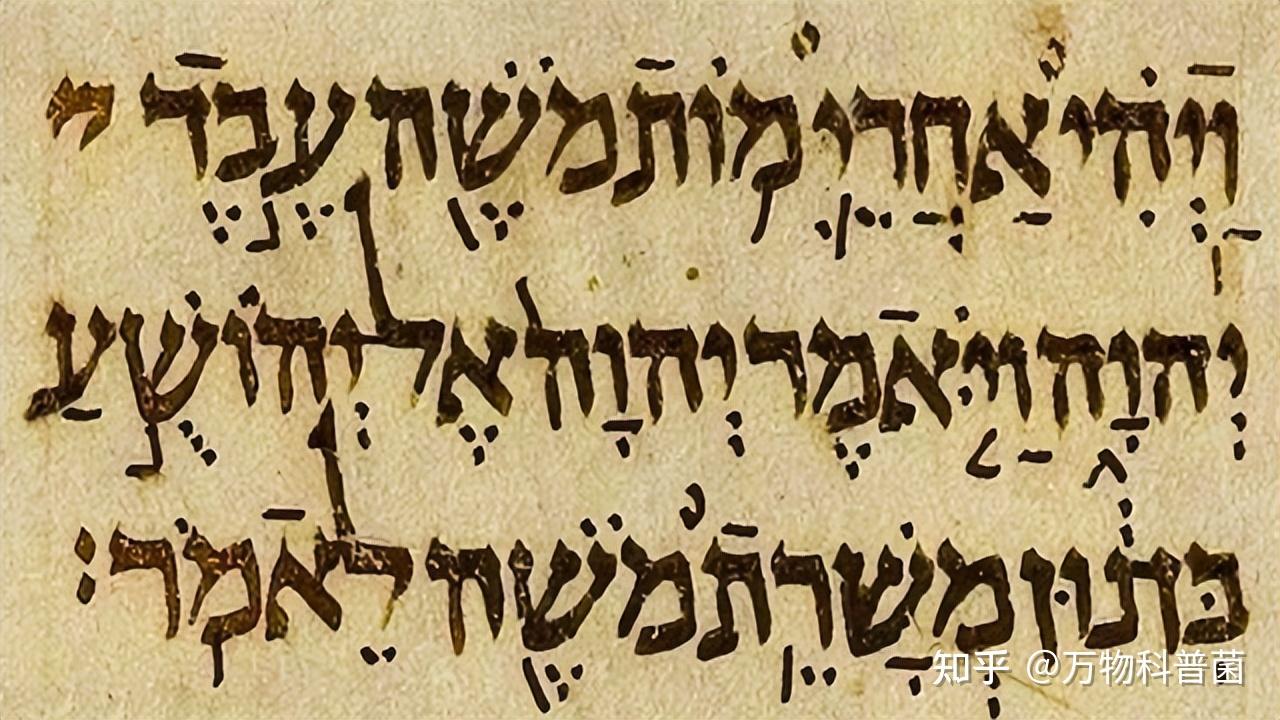 וַיְהִי אַחֲרֵי מוֹת מֹשֶׁה עֶבֶד י
יְהוָה וַיֹּאמֶר יְהוָה אֶל יְהוֹשֻׁעַ
בִּן נוּן מְשָׁרֵת מֹשֶׁה לֵאמֹר׃
知乎 @万物科普菌